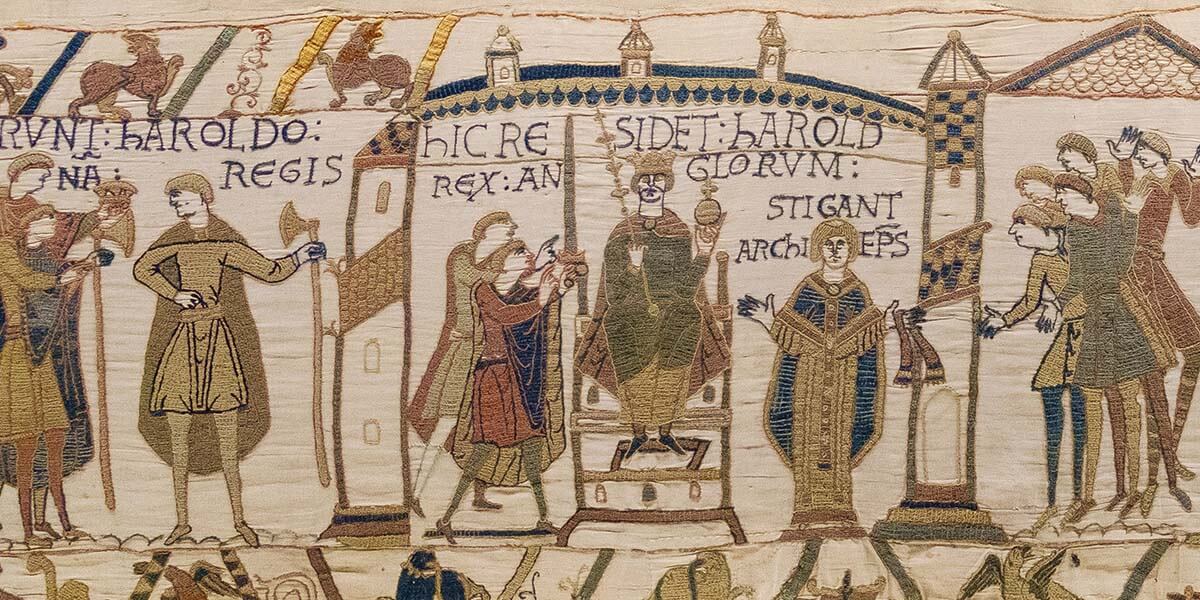 RVNT: hAROLDO:
NA: REGIS
hIC RE SIDET: hAROLD
REX: AN GLORVM:
STIGANT
ARChI EPS